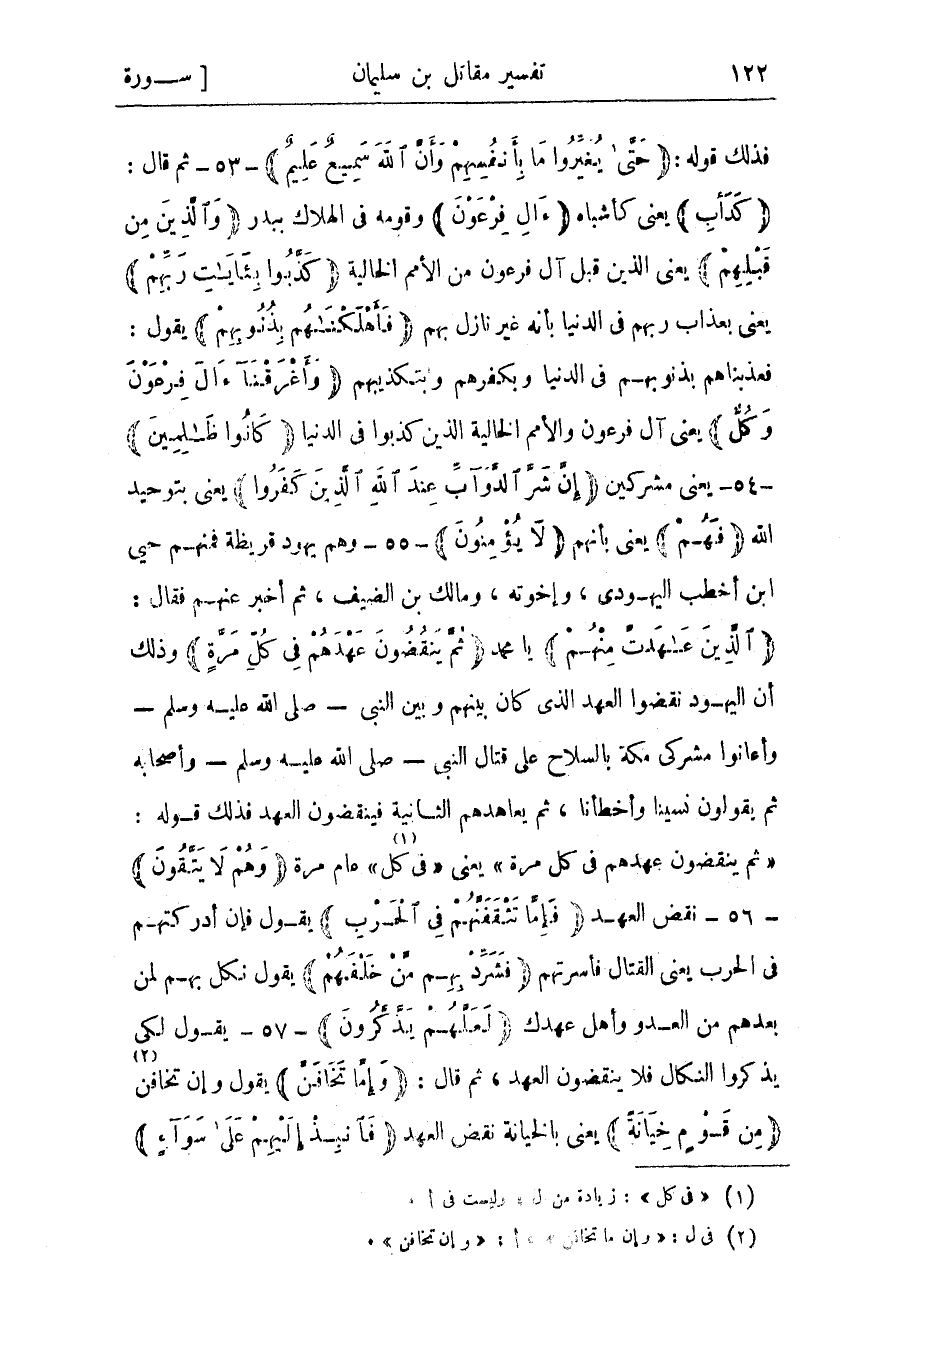 ١٢٢ تفسير مقاتل بن سليمان [ ســورة
فذلك قوله : ﴿ حَتَّىٰ يُغَيِّرُوا مَا بِأَنفُسِهِمْ وَأَنَّ ٱللَّهَ سَمِيعٌ عَلِيمٌ ﴾ ـ ٥٣ ـ ثم قال :
﴿ كَدَأْبِ ﴾ يعنى كأشباه ﴿ ءَالِ فِرْعَوْنَ ﴾ وقومه فى الهلاك ببدر ﴿ وَٱلَّذِينَ مِن
قَبْلِهِمْ ﴾ يعنى الذين قبل آل فرعون من الأمم الخالية ﴿ كَذَّبُوا بِـَٔايَـٰتِ رَبِّهِمْ ﴾
يعنى بعذاب ربهم فى الدنيا بأنه غير نازل بهم ﴿ فَأَهْلَكْنَـٰهُم بِذُنُوبِهِمْ ﴾ يقول :
فعذبناهم بذنوبهـم فى الدنيا وبكفرهم وبتكذيبهم ﴿ وَأَغْرَقْنَآ ءَالَ فِرْعَوْنَ
وَكُلٌّ ﴾ يعنى آل فرعون والأمم الخالية الذين كذبوا فى الدنيا ﴿ كَانُوا ظَـٰلِمِينَ ﴾
ـ ٥٤ ـ يعنى مشركين ﴿ إِنَّ شَرَّ ٱلدَّوَآبِّ عِندَ ٱللَّهِ ٱلَّذِينَ كَفَرُوا ﴾ يعنى بتوحيد
الله ﴿ فَهُـمْ ﴾ يعنى بأنهم ﴿ لَا يُؤْمِنُونَ ﴾ ـ ٥٥ ـ وهم يهود قريظة فمنهـم حيي
ابن أخطب اليهـودى ، وإخوته ، ومالك بن الضيف ، ثم أخبر عنهـم فقال :
﴿ ٱلَّذِينَ عَـٰهَدتَّ مِنْهُـمْ ﴾ يا محمد ﴿ ثُمَّ يَنقُضُونَ عَهْدَهُمْ فِى كُلِّ مَرَّةٍ ﴾ وذلك
أن اليهـود نقضوا العهد الذى كان بينهم وبين النبى — صلى الله عليـه وسلم —
وأعانوا مشركى مكة بالسلاح على قتال النبى — صلى الله عليـه وسلم — وأصحابه
ثم يقولون نسينا وأخطأنا ، ثم يعاهدهم الثـانية فينقضون العهد فذلك قـوله :
« ثم ينقضون عهدهم فى كل مرة » يعنى « فى كل »(١) عام مرة ﴿ وَهُمْ لَا يَتَّقُونَ ﴾
ـ ٥٦ ـ نقض العهـد ﴿ فَإِمَّا تَثْقَفَنَّهُمْ فِى ٱلْحَـرْبِ ﴾ يقـول فإن أدركتهـم
فى الحرب يعنى القتال فأسرتهم ﴿ فَشَرِّدْ بِهِـم مَّنْ خَلْفَهُمْ ﴾ يقول نكل بهـم لمن
بعدهم من العـدو وأهل عهدك ﴿ لَعَلَّهُـمْ يَذَّكَّرُونَ ﴾ ـ ٥٧ ـ يقـول لكى
يذكروا النكال فلا ينقضون العهد ، ثم قال : ﴿ وَإِمَّا تَخَافَنَّ ﴾ يقول وإن تخافن(٢)
﴿ مِن قَـوْمٍ خِيَانَةً ﴾ يعنى بالخيانة نقض العهد ﴿ فَٱنبِـذْ إِلَيْهِمْ عَلَىٰ سَوَآءٍ ﴾
(١) « فى كل » : زيادة من ل ، وليست فى أ .
(٢) فى ل : « وإن ما تخافن » ، أ : « وإن تخافن » .